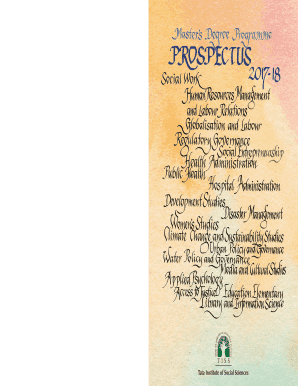 Master's Degree Programme
PROSPECTUS
2017-18
Social Work
Human Resources Management
and Labour Relations
Globalisation and Labour
Regulatory Governance
Social Entrepreneurship
Health Administration
Public Health
Hospital Administration
Development Studies
Disaster Management
Women's Studies
Climate Change and Sustainability Studies
Urban Policy and Governance
Water Policy and Governance
Media and Cultural Studies
Applied Psychology
Access to Justice Education Elementary
Library and Information Science
TISS
Tata Institute of Social Sciences